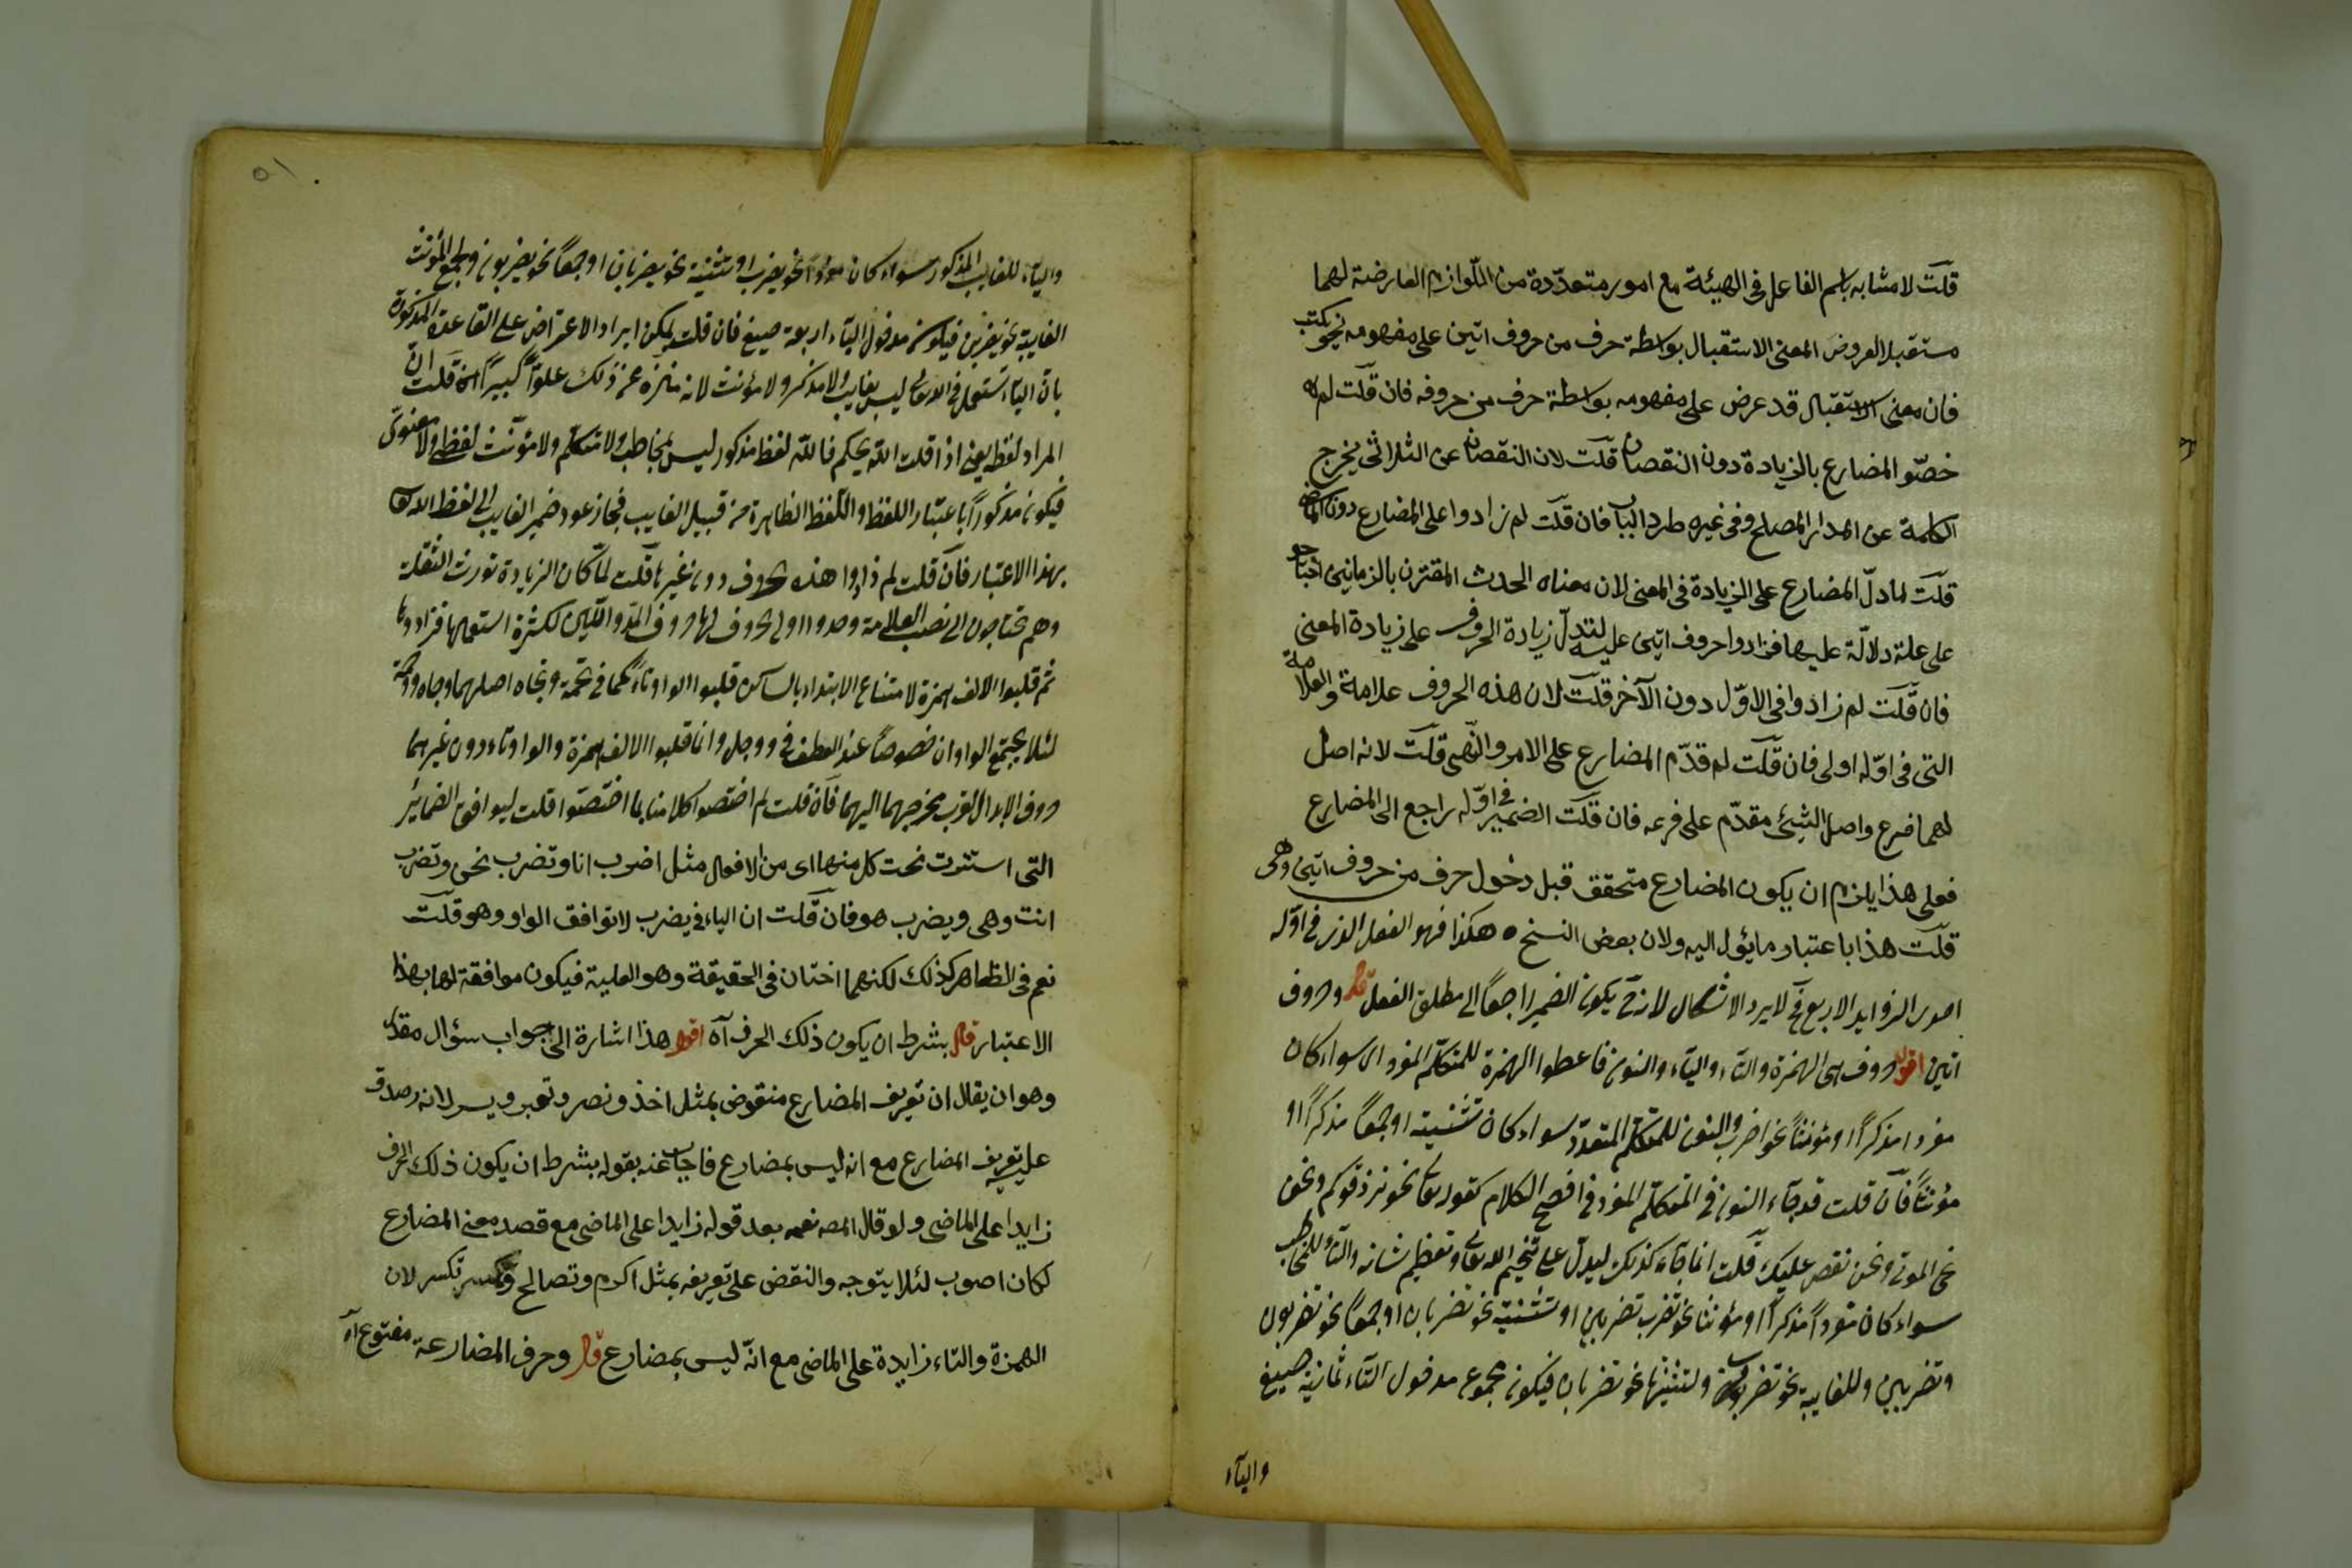 قلت لا مشابه باسم الفاعل فى الهيئة مع امور متعدّدة من اللّوازم العارضة لهما
مستقبلا لعروض المعنى الاستقبال بواسطة حرف من حروف اتين على مفهومه نحو يكتب
فان معنى الاستقبال قد عرض على مفهومه بواسطة حرف من حروفه فان قلت لم
خصّو المضارع بالزيادة دون النقصان قلت لان النقصان عن الثلاثى يخرج
الكلمة عن المدار المصلح وفى غيره طرد الباب فان قلت لم زادوا على المضارع دون الماضى
قلت لما دلّ المضارع على الزيادة فى المعنى لان معناه الحدث المقترن بالزمانين احتاجو
على علة دلالة عليها فزادوا حروف اتين عليه لتدلّ زيادة الحروف على زيادة المعنى
فان قلت لم زادوا فى الاوّل دون الآخر قلت لان هذه الحروف علامة والعلامة
التى فى اوّله اولى فان قلت لم قدّم المضارع على الامر والنّهى قلت لانه اصل
لهما فرع واصل الشيئ مقدّم على فرعه فان قلت الضمير فى اوّله راجع الى المضارع
فعلى هذا يلزم ان يكون المضارع متحقق قبل دخول حرف من حروف اتين وهى
قلت هذا باعتبار مايئول اليه ولان بعض النسخ هكذا فهو الفعل الذى فى اوّله
احدى الزوايد الاربع فح لا يرد الاشكال لانه ح يكون الضمير راجعاً الى مطلق الفعل قال وحروف
اتين اقول حروف هى الهمزة والتاء والياء والنون فاعطوا الهمزة للمتكلّم المفرد اى سواء كان
مفردا مذكراً او مؤنثاً نحو اضرب والنون للمتكلم المتعدّد سواء كان تثنية او جمعاً مذكراً او
مؤنثاً فان قلت قد جاء النون فى المتكلّم المفرد فى افصح الكلام كقوله تعالى نحو نرزقكم ونحن
نحى الموتى ونحن نقص عليك قلت انما جاء كذلك ليدلّ على تفخيم الله تعالى وتعظيم شانه والتاء للمخاطب
سواء كان مفرداً مذكراً او مؤنثا نحو تضرب تضربين او تثنية نحو تضربان او جمعاً نحو تضربون
وتضربين وللغايبة نحو تضرب ولتثنيتها نحو تضربان فيكون مجموع مدخول التاء ثمانية صيغ
والياء
٥١
والياء للغايب المذكور سواء كان مفرداً نحو يضرب او تثنية نحو يضربان او جمعاً نحو يضربون ولجمع المؤنث
الغايبة نحو يضربن فيكون مدخول الياء اربعة صيغ فان قلت يمكن ايراد الاعتراض على القاعدة المذكورة
بان الياء تستعمل فى الله تعالى ليس بغايب ولا مذكر ولا مؤنث لانه منزه عن ذلك علوّاً كبيراً قلت ان
المراد لفظه يعنى اذا قلت الله يحكم فالله لفظ مذكور ليس بمخاطب ولا متكلم ولا مؤنث لفظى ولا معنوى
فيكون مذكوراً باعتبار اللفظ واللفظ الظاهرة من قبيل الغايب فجاز عود ضمير الغايب الى لفظ الله تعالى
بهذا الاعتبار فان قلت لم زادوا هذه الحروف دون غيرها قلت لمّا كان الزيادة تورث الثقلة
وهم يحتاجون الى نصب العلامة وجدوا اولى الحروف لها حروف المدّ واللّين لكثرة استعمالها فزادوها
ثم قلبوا الالف همزة لامتناع الابتداء بالساكن قلبوا الواو تاءً كما فى تخمة وتجاه اصلهما وجاه ووخمة
لئلا يجتمع الواوان خصوصاً عند العطف فى ووجل وانما قلبوا الالف همزة والواو تاء دون غيرهما
حروف الابدال لقرب مخرجهما اليهما فان قلت لم اختصوا كلا منها بما اختصّوا قلت ليوافق الضمائر
التى استترت تحت كل منها اى من الافعال مثل اضرب انا وتضرب نحن وتضرب
انت وهى ويضرب هو فان قلت ان الياء فى يضرب لا توافق الواو وهو قلت
نعم فى الظاهر كذلك لكنهما اختان فى الحقيقة وهو العلية فيكون موافقة لها بهذا
الاعتبار قال بشرط ان يكون ذلك الحرف آه اقول هذا اشارة الى جواب سؤال مقدّر
وهو ان يقال ان تعريف المضارع منقوض بمثل اخذ ونصر وتعبر ويسر لانه صدق
عليه تعريف المضارع مع انه ليس بمضارع فاجاب عنه بقوله بشرط ان يكون ذلك الحرف
زايدا على الماضى ولو قال المصنف بعد قوله زايدا على الماضى مع قصد معنى المضارع
لكان اصوب لئلا يتوجه والنقض على تعريفه بمثل اكرم وتصالح وتكسر لان
الهمزة والتاء زايدة على الماضى مع انّه ليس بمضارع قال وحرف المضارعة مفتوح آه